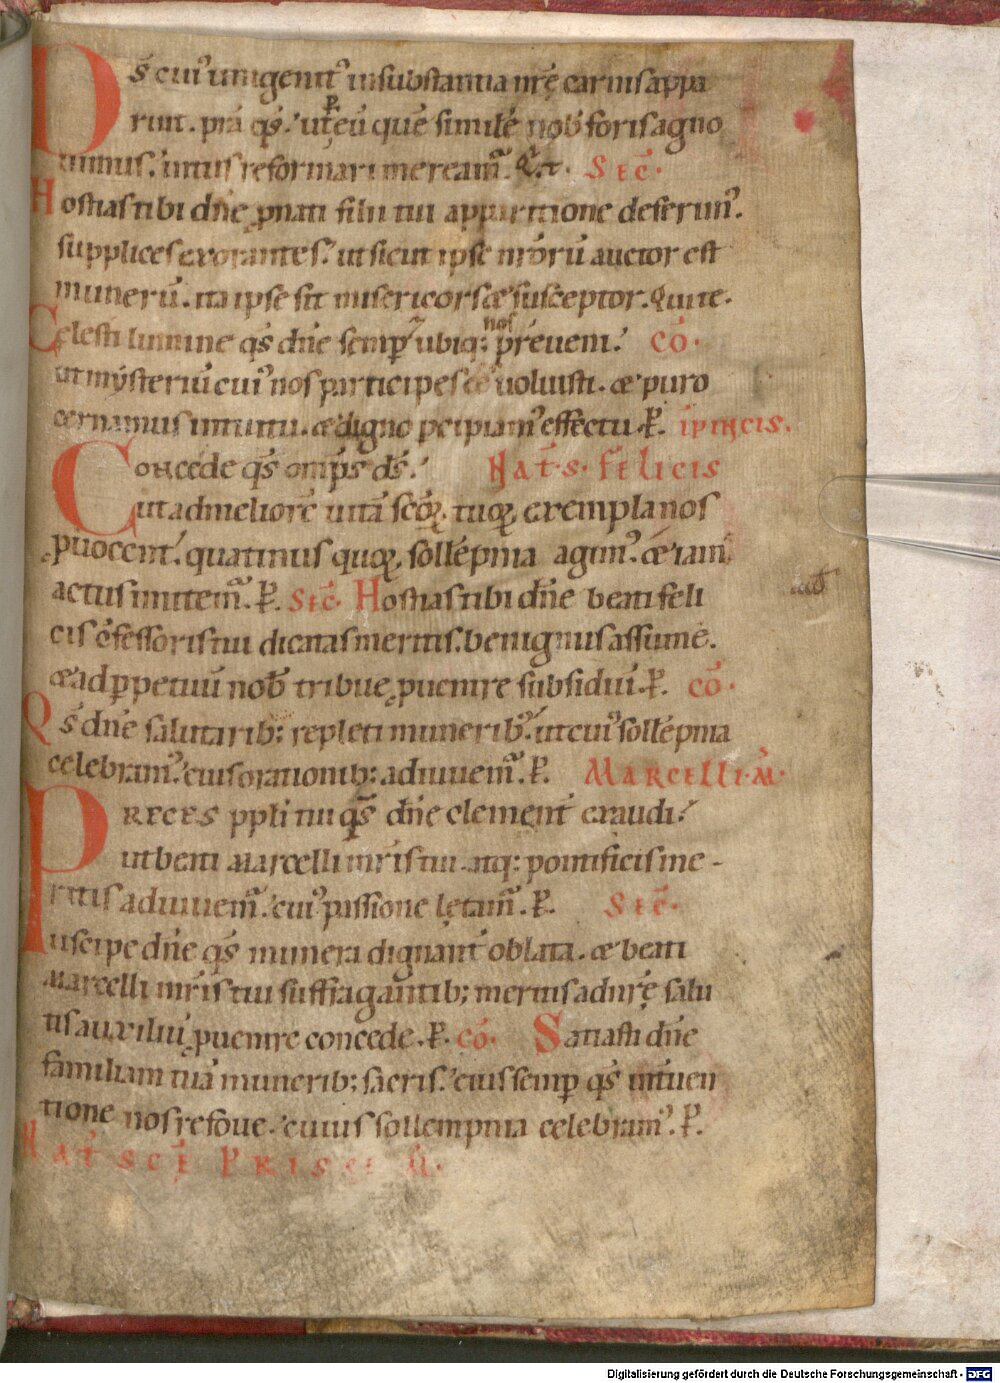 Ds̄ cui᾽ unigenit᾽ insubstantia nr̄ę carnisappa
ruit. pͣra qs̄.᾽ utꝑeū quē similē nob̄ forisagno
uimus.᾽ intusreformari mereamur̄. Q.t. Stc̄.
Hostiastibi dn̄e ꝓnati filii tui apparitione deferim᾽.
supplicesexorantes.᾽ utsicut ipse nr̄orū auctor est
munerū. ita ipse sit misericorsæsusceptor. Quite.
Celesti lumine qs̄ dn̄e semꝑ ubiq: nos preueni.᾽ cō.
utmẏsteriū cui᾽ nos participesēē uoluisti. æ puro
cernamus intuitu. ædigno pcipiam᾽ effectu. P̄. ipincis.
Concede qs̄ omp̄s ds̄.᾽ Nat̄.s. felicis
utadmeliorē uitā scōꝝ. tuoꝝ. exemplanos
ꝓuocent.᾽ quatinus quoꝝ. sollēpnia agim᾽. æiam
actusimitem̄. P̄. Stc̄. Hostiastibi dn̄e beatifeli
cis cōfessoristui dicatasmeritis. benignusassume.
æadꝑpetuū nob̄ tribue ꝓuenire subsidiū. P̄. cō.
Qs̄ dn̄e salutarib: repleti munerib᾽.᾽ utcui᾽ sollēpnia
celebram᾽.᾽ eiusorationib: adiuuem̄. P̄. Marcelli. M̄.
Preces ppl̄i tui qs̄ dn̄e clement̄ exaudi.᾽
utbeati Marcelli mr̄istui. atq: pontificisme-
ritisadiuuem̄.᾽ cui᾽ passione lętam̄. P̄. Stc̄.
Suscipe dn̄e qs̄ munera dignant̄ oblata. æ beati
Marcelli mr̄is tui suffragantib; meritisadnr̄ę salu
tisauxiliū ꝓuenire concede. P̄. cō. Satiasti dn̄e
familiam tuā munerib; sacris.᾽ eiussemꝑ qs̄ int̄uen
tione nosrefoue.᾽ cuius sollempnia celebram᾽. P̄.
Nat̄ scē Prisce M̄.
Digitalisierung gefördert durch die Deutsche Forschungsgemeinschaft - DFG